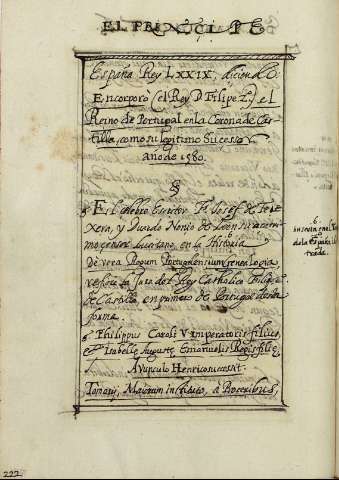 EL PRINCIPE
España Rey LXXIX, diciendo
Encorporò (el Rey D. Filipe 2.) el
Reino de Portugal en la Corona de Cas
tilla, como su legitimo Sucessor
año de 1580.
§
Es l celebre Escritor Fr. Josef de Teix
Xera, y Duardo Nonio de Leon su acerri
mo censor Lusitano, en su Historia
De vera Regum Portugaliensium Genealogia
refiere la Jura del Rey Catholico Filipe
de Castilla, en primero de Portugal desta
forma.
Philippus Caroli V Imperatoris filius,
& Isabellæ Augustæ Emanuelis Regis filiæ,
Avunculo Henrico successit.
Tomarii, Maiorum instituto, à Proceribus,
6
en el
de la España
trada.
222